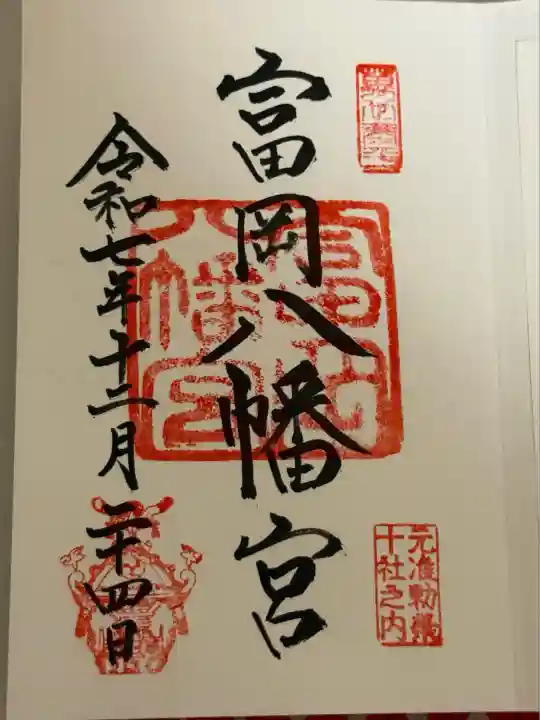 富岡八幡宮
元准勅祭
十社之内
令和七年十二月二十四日